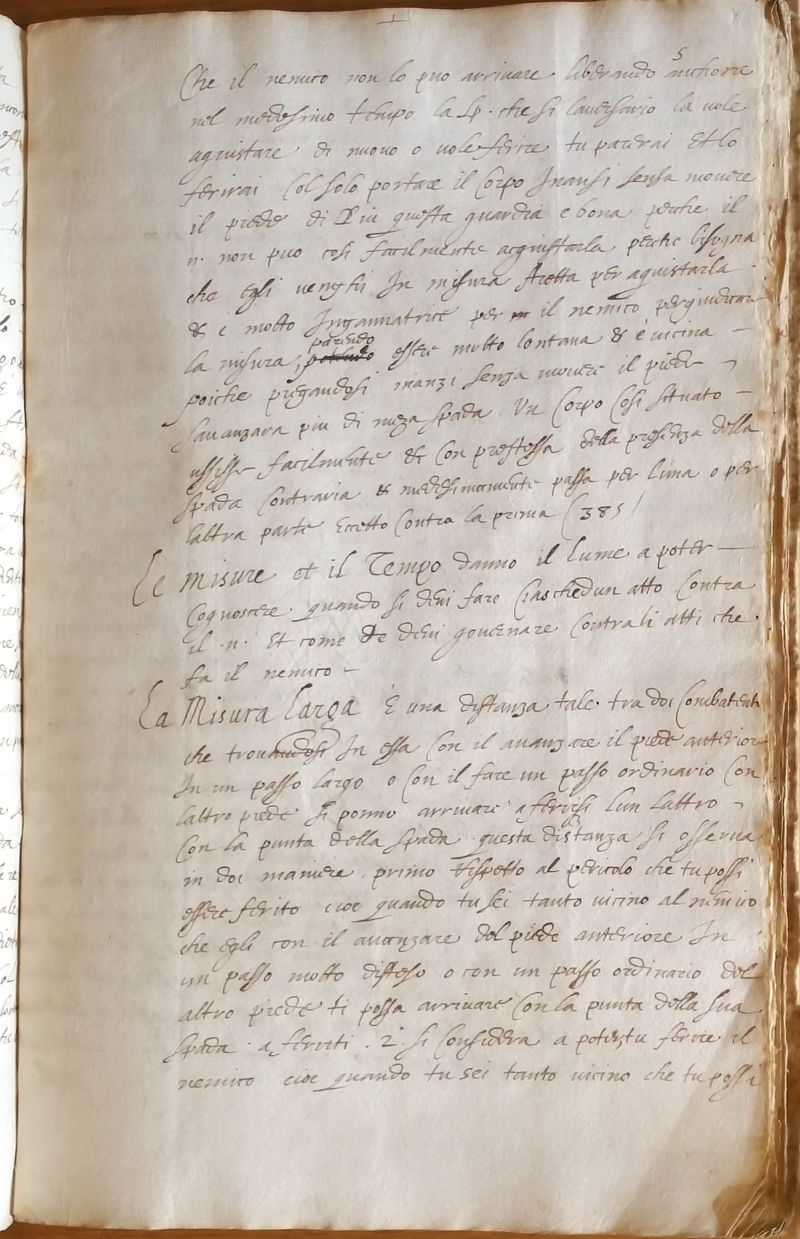 Che il nemico non lo puo arrivare liberando anchora
nel medesimo tempo la Sp. che si lavesario la vole
aquistare di nuovo o vole ferire tu pararai et lo
ferirai Col solo portare il Corpo Inansi sensa movere
il piede di Piu questa guardia e bona perche il
n. non puo cosi facilmente acquistarla perche bisogna
che Egli venghi In misura stretta per aquistarla
& e molto Ingannatrice per il nemico per giudicar
la misura, parendo essere molto lontana & è vicina –
poiche piegandosi inanzi senza movere il piede
savanzara piu di meza spada. Un Corpo Cosi situato –
ussisse facilmente & Con prestessa della presenza della
spada Contraria & medesimamente passa per luna o per
laltra parte Eccetto Contra la prima (385)
Le misure et il Tempo danno il lume a poter –
Cognoscere quando si devi fare Ciaschedun atto Contra
il .n. Et come te devi governare Contra li atti che
fa il nemico –
La Misura Larga È una distanza tale tra doi Combatenti
che trovandosi In essa Con il avanzare il piede anterior
In un passo largo o Con il fare un passo ordinario Con
laltro piede si ponno arrivare a ferirsi lun laltro
Con la punta della spada questa distanza si osserva
in doi maniere. primo Rispetto al pericolo che tu possi
essere ferito cioe quando tu sei tanto vicino al nemico
che egli con il avanzare del piede anteriore In
un passo molto disteso o con un passo ordinario del
altro piede ti possa arrivare Con la punta della sua
spada a ferirti . 2° si Considera a potertu ferire il
nemico cioe quando tu sei tanto vicino che tu possi